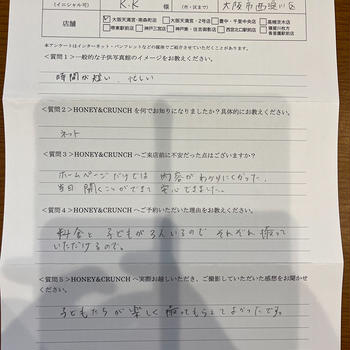 (イニシャル可) K.K (市・区まで) 大阪市西淀川区
店舗 ☑大阪天満宮・南森町店 □大阪天満宮・2号店 □豊中・千里中央店 □高槻茨木店
□堺東駅前店 □神戸三宮店 □神戸東・住吉御影店 □西宮北口駅前店
本アンケートはインターネット・パンフレットなどの媒体でご紹介させていただくことがあります。
<質問1>一般的な子供写真館のイメージをお教えください。
時間が短い、忙しい
<質問2>HONEY&CRUNCHを何でお知りになりましたか?具体的にお教えください。
ネット
<質問3>HONEY&CRUNCHへご来店前に不安だった点はございますか?
ホームページだけでは内容がわかりにくかった。
当日聞くことができて安心できました。
<質問4>HONEY&CRUNCHへご予約いただいた理由をお教えください。
料金と子どもが3人いるのでそれぞれ撮って
いただけるので。
<質問5>HONEY&CRUNCHへ実際お越しいただき、ご撮影していただいた感想をお聞かせ
ください。
子どもたちが楽しく撮ってもらえてよかったです。